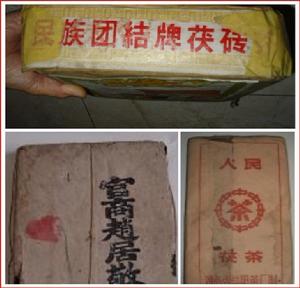 民族团結牌茯砖
官商趙居敬
人民
茶
茯茶